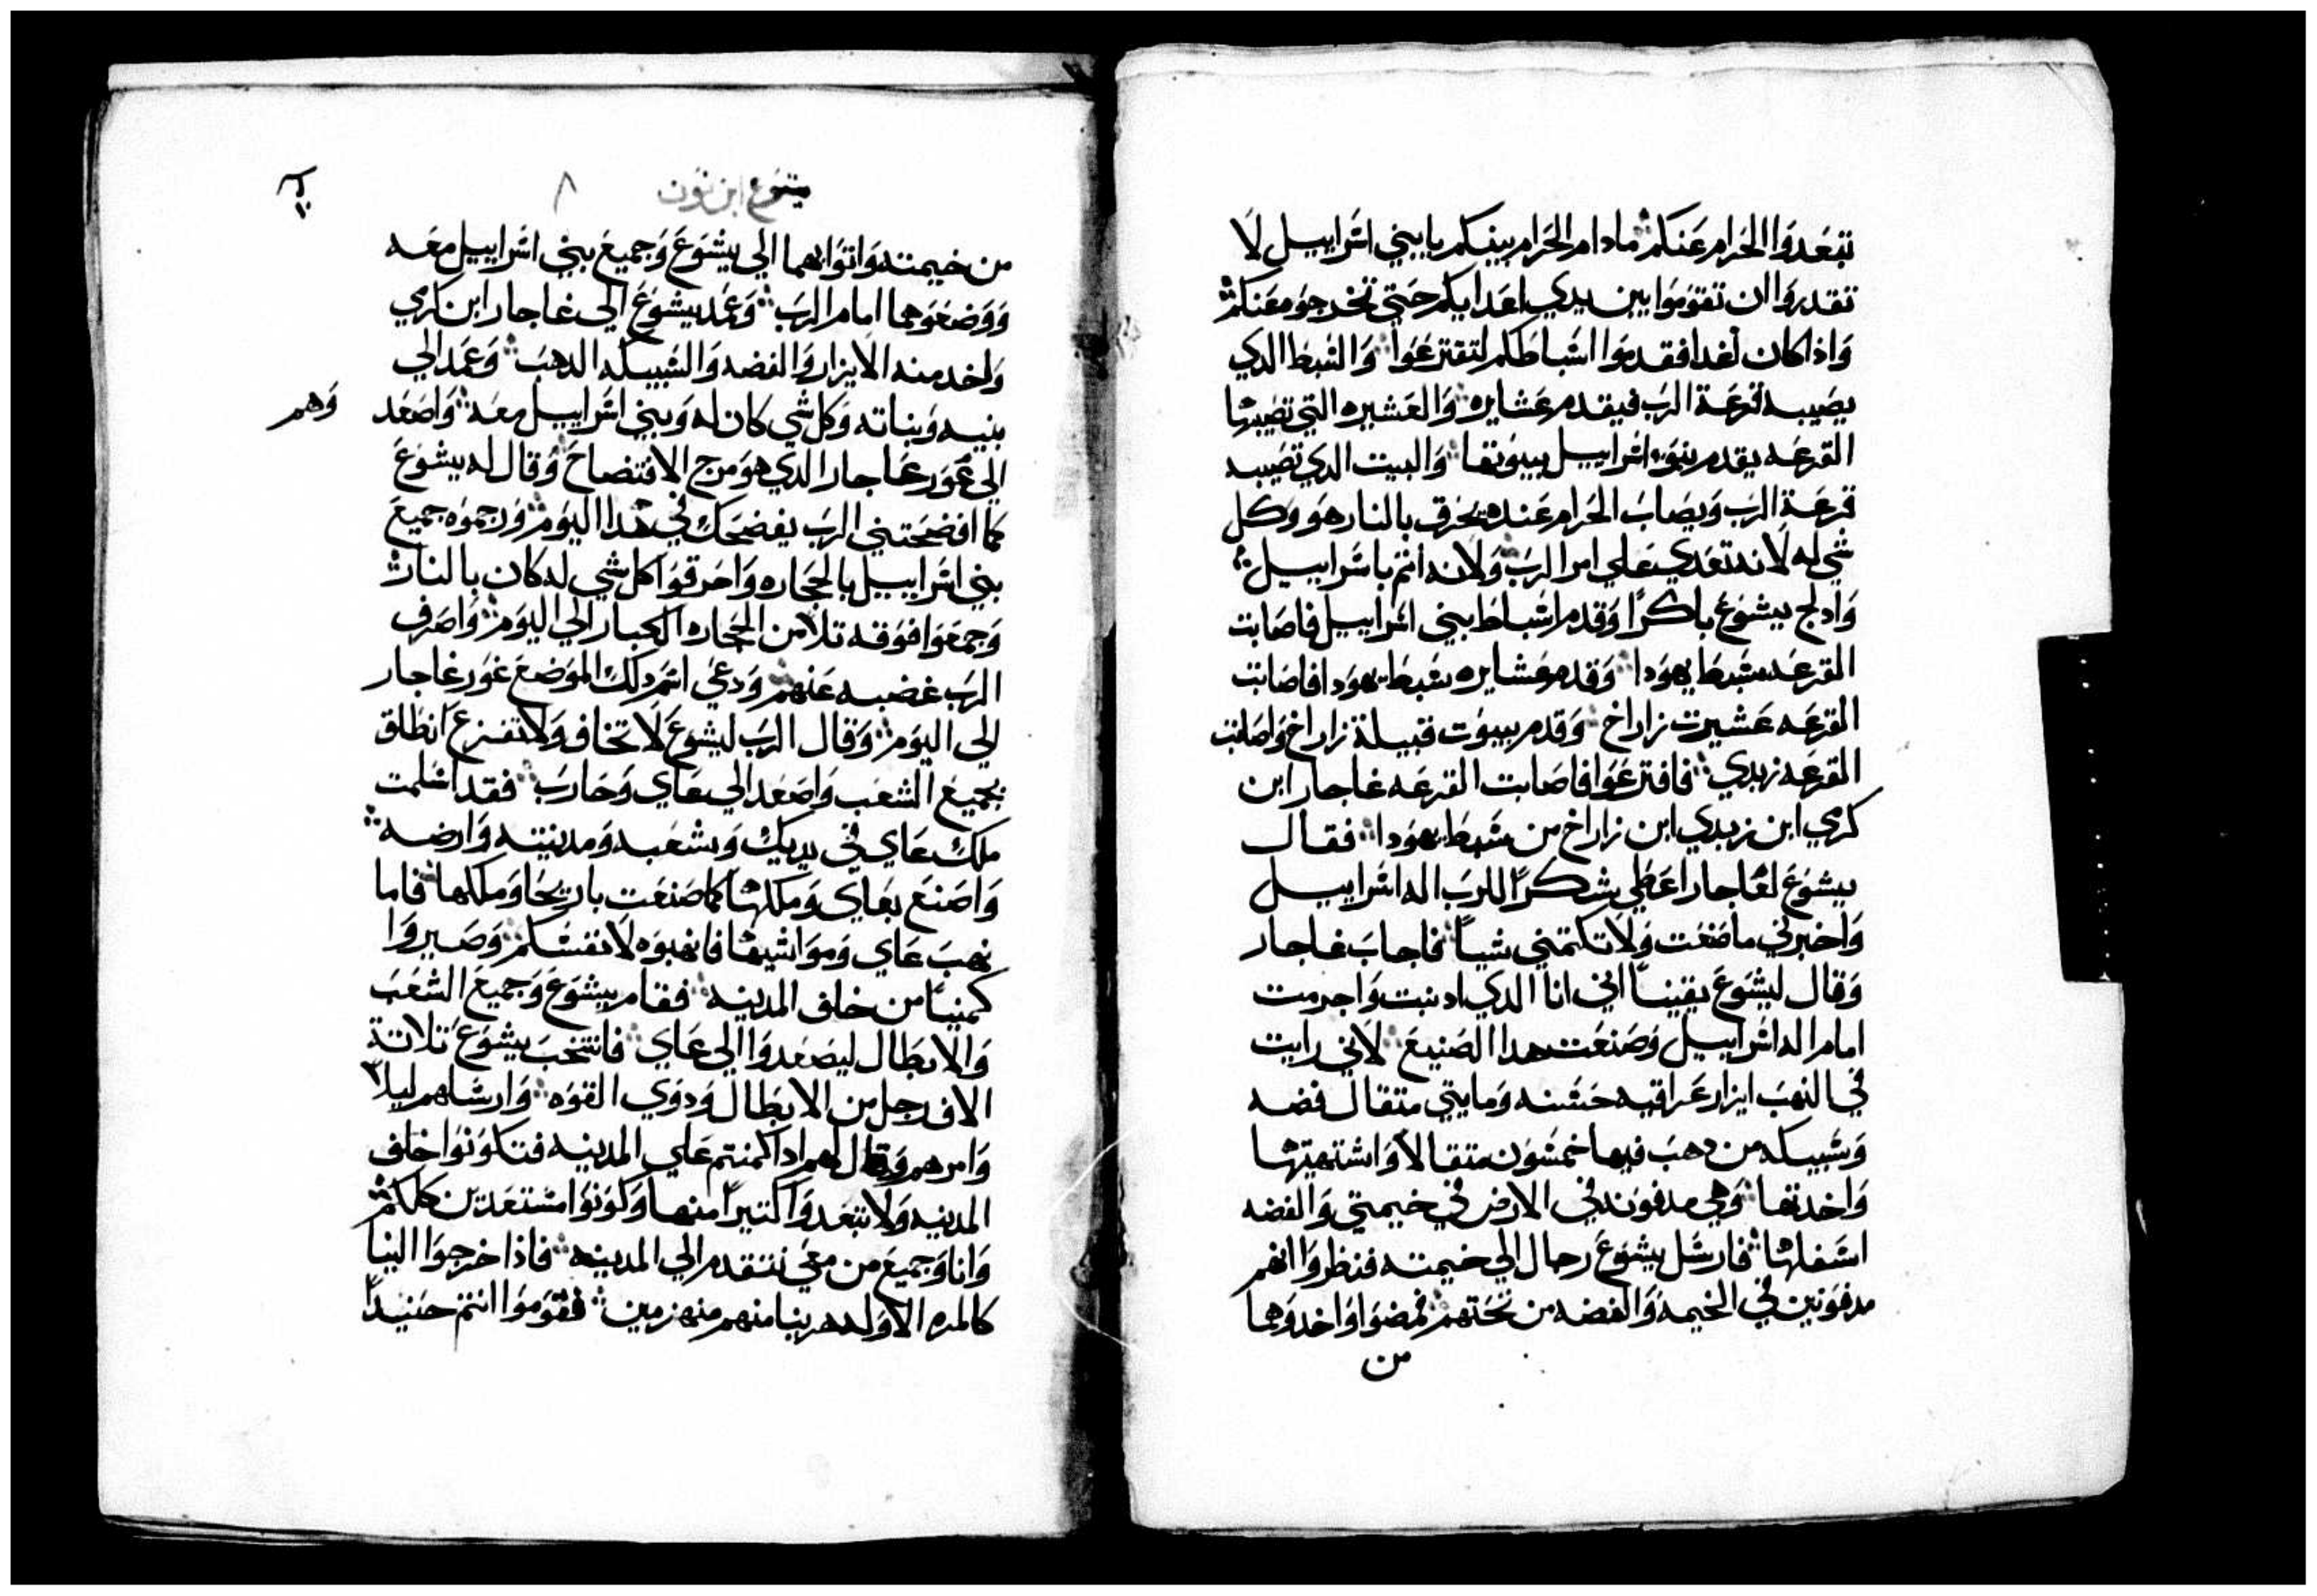 تبعدوا الحرام عنكم ما دام الحرام بينكم يا بني اسراييل لا
تقدروا ان تقوموا بين يدي اعدايكم حتي تخرجوه عنكم
واذا كان غدا فقدموا اسباطكم لتقترعوا والسبط الدي
يصيبه قرعة الرب فيقدم عشايره والعشيره التي تصيبها
القرعه يقدم بنو اسراييل بيوتها والبيت الدي تصيبه
قرعة الرب ويصاب الحرام عنده يحرق بالنار هو وكل
شي له لانه تعدي علي امر الرب ولانه اتم باسراييل
وادلج يشوع باكرا وقدم اسباط بني اسراييل فاصابت
القرعه سبط يهودا وقدم عشايره سبط يهودا فاصابت
القرعه عشيرت زاراخ وقدم بيوت قبيلة زاراخ واصابت
القرعه زبدي فاقترعوا فاصابت القرعه غاجار ابن
كرمي ابن زبدي ابن زاراخ من سبط يهودا فقال
يشوع لغاجار اعطي شكرا للرب اله اسراييل
واخبرني ما صنعت ولا تكتمني شيا فاجاب غاجار
وقال ليشوع يقينا اني انا الدي ادنبت واجرمت
امام اله اسراييل وصنعت هدا الصنيع لاني رايت
في النهب ايزار عراقيه حسنه ومايتي متقال فضه
وسبيكه من دهب فيها خمسون متقالا واشتهيتها
واخدتها وهي مدفونه في الارض في خيمتي والفضه
اسفلها فارسل يشوع رجال الي خيمته فنظروا انهم
مدفونين في الخيمه والفضه من تحتهم فمضوا واخدوهما
من
يشوع ابن نون ٨
من خيمته واتوا بهما الي يشوع وجميع بني اسراييل معه
ووضعوهما امام الرب وعمد يشوع الي غاجار ابن كرمي
واخد منه الايزار والفضه والسبيكه الدهب وعمد الي
بنيه وبناته وكل شي كان له وبني اسراييل معه واصعد
وهم
الي غور غاجار الدي هو مرج الافتضاح وقال له يشوع
كما افضحتني الرب يفضحك في هدا اليوم ورجموه جميع
بني اسراييل بالحجاره واحرقوا كل شي له كان بالنار
وجمعوا فوقه تلا من الحجاره الكبار الي اليوم واصرف
الرب غضبه عنهم ودعي اسم دلك الموضع غور غاجار
الي اليوم وقال الرب ليشوع لا تخاف ولا تفزع انطلق
بجميع الشعب واصعد الي عاي وحارب فقد اسلمت
ملك عاي في يديك وشعبه ومدينته وارضه
واصنع بعاي وملكها كما صنعت باريحا وملكها فاما
نهب عاي ومواشيها فانهبوه لانفسكم وصيروا
كمينا من خلف المدينه فقام يشوع وجميع الشعب
والابطال ليصعدوا الي عاي فانتخب يشوع تلاتة
الاف رجل من الابطال ودوي القوه وارسلهم ليلا
وامرهم وقال لهم ادا كمنتم علي المدينه فتكونوا خلف
المدينه ولا تبعدوا كتيرا منها وكونوا مستعدين كلكم
وانا وجميع من معي نتقدم الي المدينه فاذا خرجوا الينا
كالمره الاوله هربنا منهم منهزمين فقوموا انتم حينيدا